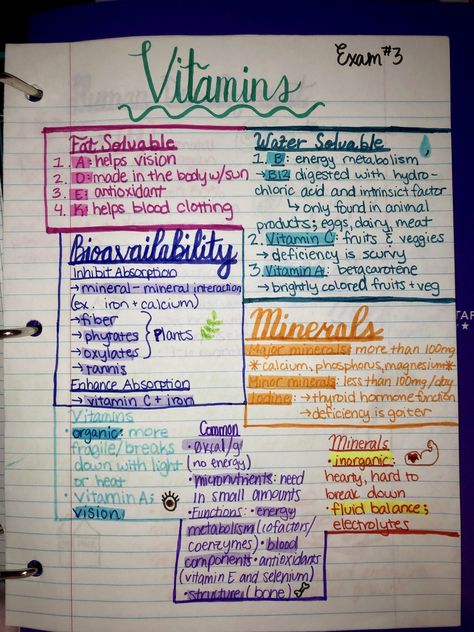 Exam #3
Vitamins
Fat Soluable
1. A: helps vision
2. D: made in the body w/sun
3. E: antioxidant
4. K: helps blood clotting
Water Soluable
1. B: energy metabolism
→ B12 digested with hydro-
chloric acid and intrinsict factor
↳ only found in animal
products; eggs, dairy, meat
2. Vitamin C: fruits & veggies
→ deficiency is scurvy
3. Vitamin A: betacarotene
→ brightly colored fruits + veg
Bioavailability
Inhibit Absorption
→ mineral-mineral interaction
(ex. iron + calcium)
→ fiber
→ phytates
→ oxylates
→ tannis
Plants
Enhance Absorption
→ vitamin C + iron
Minerals
Major minerals: more than 100mg
*calcium, phosphorus, magnesium*
Minor minerals: less than 100mg/day
Iodine: → thyroid hormone function
→ deficiency is goiter
Vitamins
• organic: more
fragile/breaks
down with light
or heat
• Vitamin A:
vision
Common
• 0kcal/g
(no energy)
• micronutrients: need
in small amounts
• Functions: • energy
metabolism (cofactors/
coenzymes) • blood
components • antioxidants
(vitamin E and selenium)
• structure (bone)
Minerals
• inorganic:
hearty, hard to
break down
• fluid balance;
electrolytes